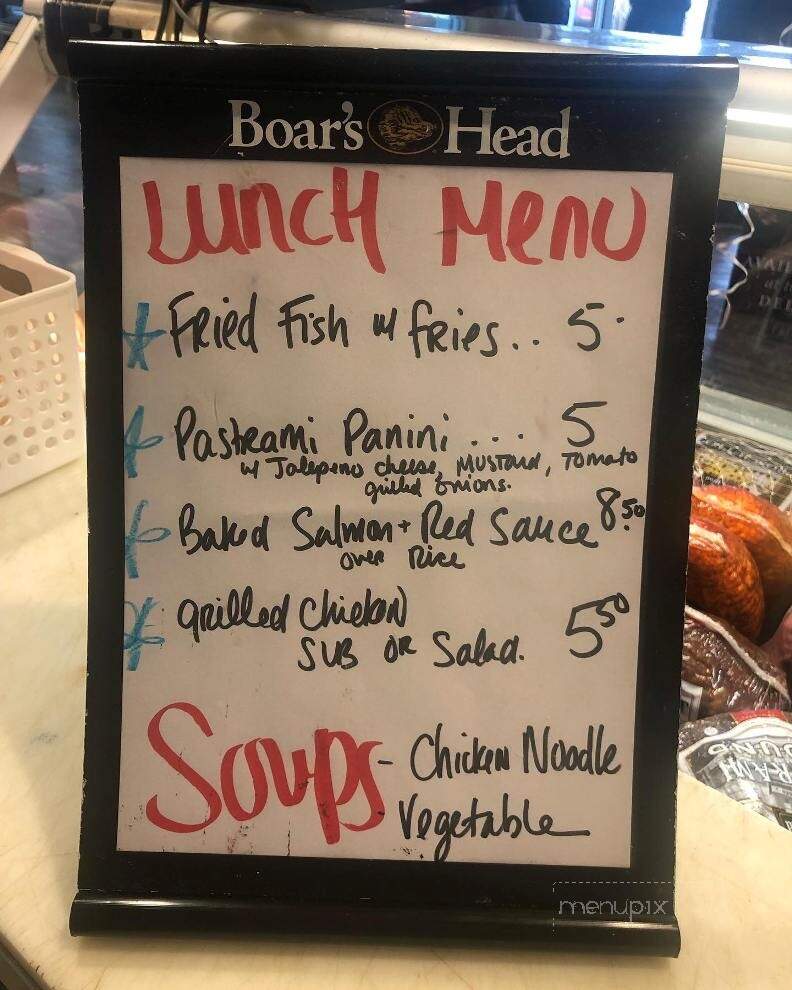 Boar's Head
Lunch Menu
Fried Fish w/ fries.. 5.
Pastrami Panini.... 5
w/ Jalapeno cheese, MUSTARD, Tomato
grilled onions.
Baked Salmon + Red Sauce 8.50
over Rice
grilled chicken
SUB OR Salad. 5.50
Soups - Chicken Noodle
Vegetable
menupix